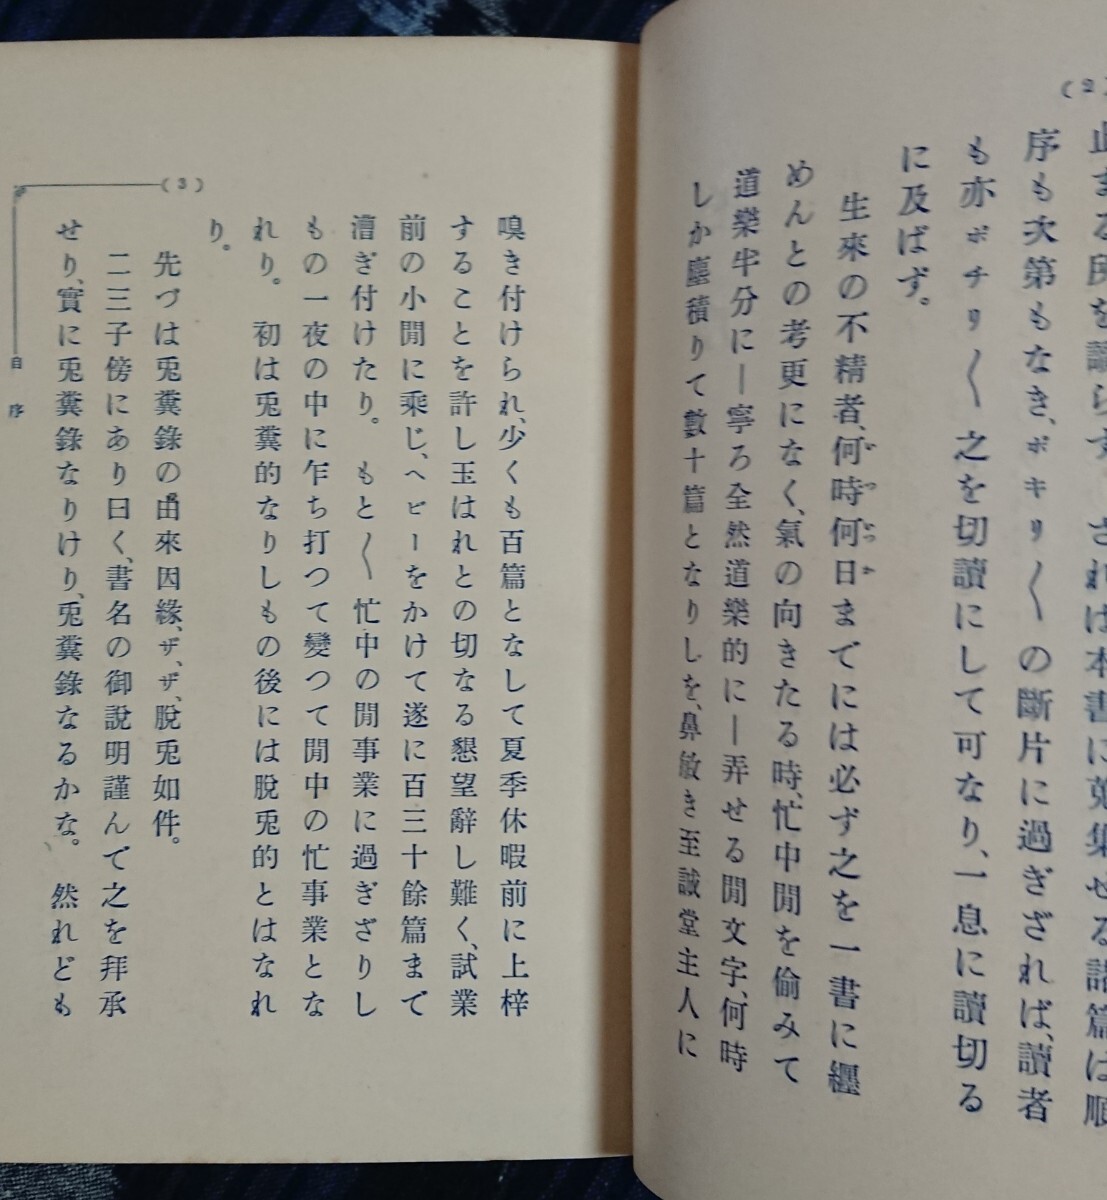 (2)
止まる所を識らず、されば本書に蒐集せる諸篇は順
序も次第もなき、ポキリ〱の斷片に過ぎざれば、讀者
も亦ポチリ〱之を切讀にして可なり、一息に讀切る
に及ばず。
生來の不精者、何時何日までには必ず之を一書に纒
めんとの考更になく、氣の向きたる時、忙中閒を偷みて
道樂半分に―寧ろ全然道樂的に―弄せる閒文字、何時
しか塵積りて數十篇となりしを、鼻敏き至誠堂主人に
(3)
自序
嗅き付けられ、少くも百篇となして夏季休暇前に上梓
することを許し玉はれとの切なる懇望辭し難く、試業
前の小閒に乘じ、ヘビーをかけて遂に百三十餘篇まで
漕ぎ付けたり。もと〱忙中の閒事業に過ぎざりし
もの一夜の中に乍ち打つて變つて閒中の忙事業とな
れり。初は兎糞的なりしもの後には脫兎的とはなれ
り。
先づは兎糞錄の由來因緣、ザ、ザ、脫兎如件。
二三子傍にあり曰く、書名の御說明謹んで之を拜承
せり、實に兎糞錄なりけり、兎糞錄なるかな。然れども